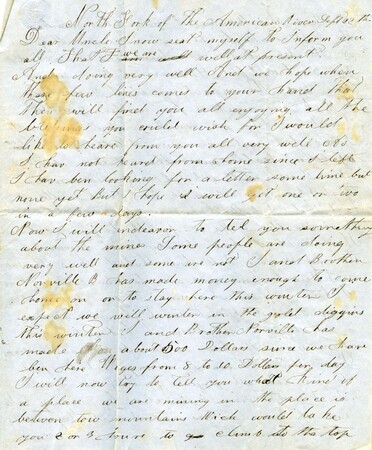 North Fork of the American River Sept
Dear Uncle I now seat myself to Inform you
all That I we are all well at present
And doing very well And we hope when
these few lines comes to your hand that
they will find you all enjoying all the
blessings you could wish for I would
like to heare from you all very well As
I hav not heard from home since I left
I hav ben looking for a letter some time but
none yet But I hope I will get one or two
in a few days.
Now I will indeavor to tell you something
about the mines Some people are doing
very well and some are not I and Brother
Norville B. has made money enough to come
home on or to stay here this winter I
expect we will winter in the gold diggins
this winter I and Brother Norville has
made about 500 Dollars since we hav
ben here Wages from 8 to 10 Dollars per day
I will now try to tell you what kind of
a place we are mining in the place is
betwen tow mountains Wich would take
you 2 or 3 hours to climb to the top